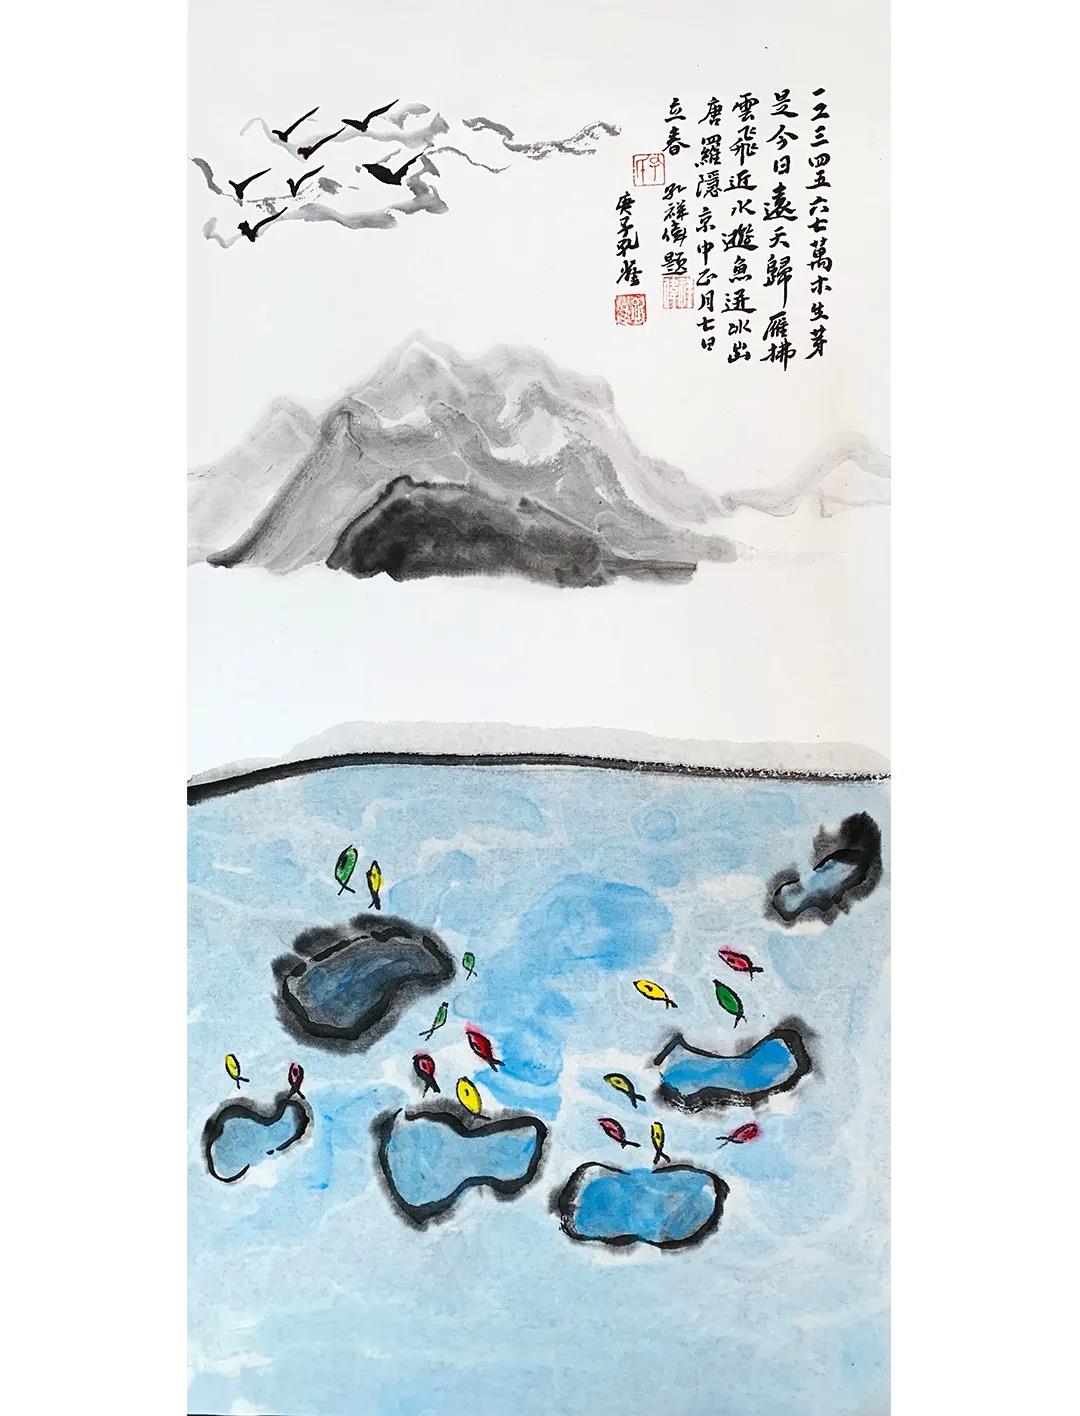 一二三四五六七萬木生芽
是今日遠天歸雁拂
雲飛近水遊魚迸冰出
唐羅隱京中正月七日
立春 孔祥偉題
庚子孔